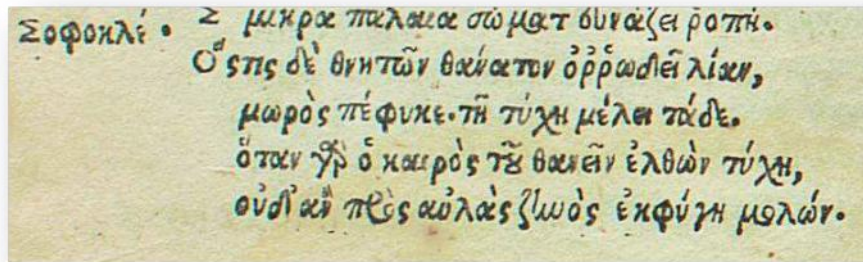 Σ μικρὰ παλαιὰ σώματ' εὐνάζει ῥοπή.
Σοφοκλέ.
Ὅςτις δὲ θνητῶν θάνατον ὀῤῥωδεῖ λίαν,
μωρὸς πέφυκε. τῇ τύχῃ μέλει τάδε.
ὅταν γὰρ ὁ καιρὸς τοῦ θανεῖν ἐλθὼν τύχῃ,
οὐδ' ἂν πρὸς αὐλὰς ζηνὸς ἐκφύγῃ μολών.